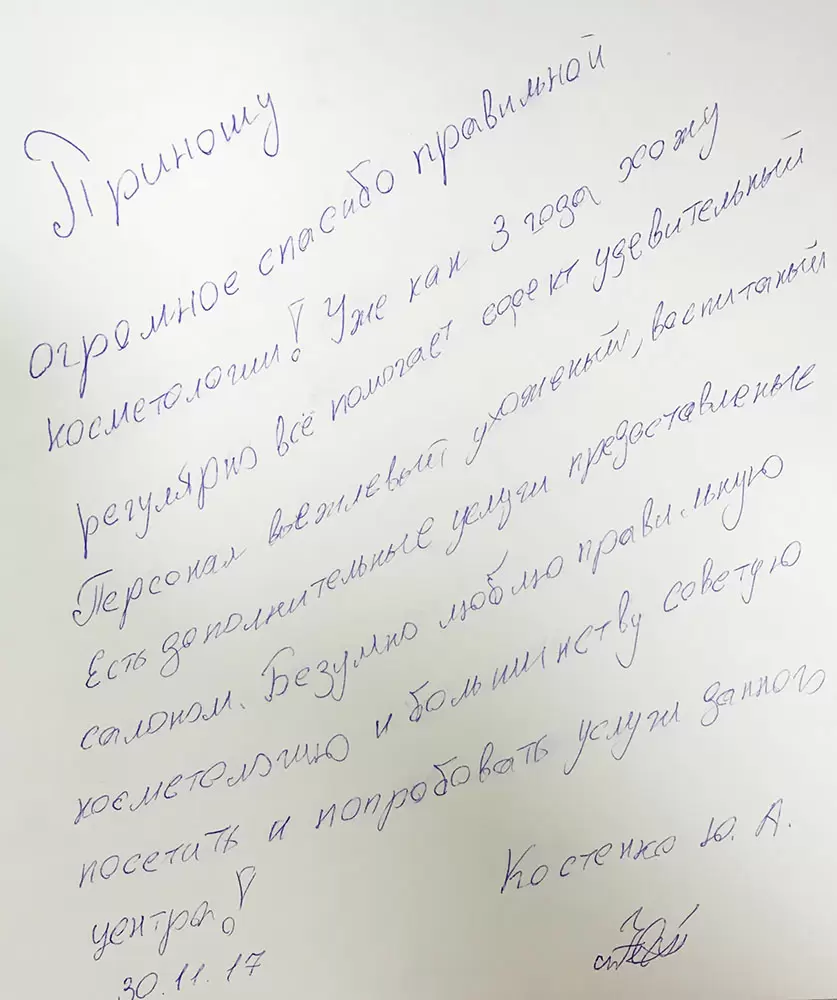 Приношу
огромное спасибо правильной
косметологии! Уже как 3 года хожу
регулярно всё помогает ефект удевительный
Персонал вьежлевый ухоженый, воспитаный
Есть дополнительные услуги предоставленые
салоном. Безумно люблю правильную
косметологию и большинству советую
посетить и попробовать услуги данного
центра!
Костенко Ю. А.
30.11.17